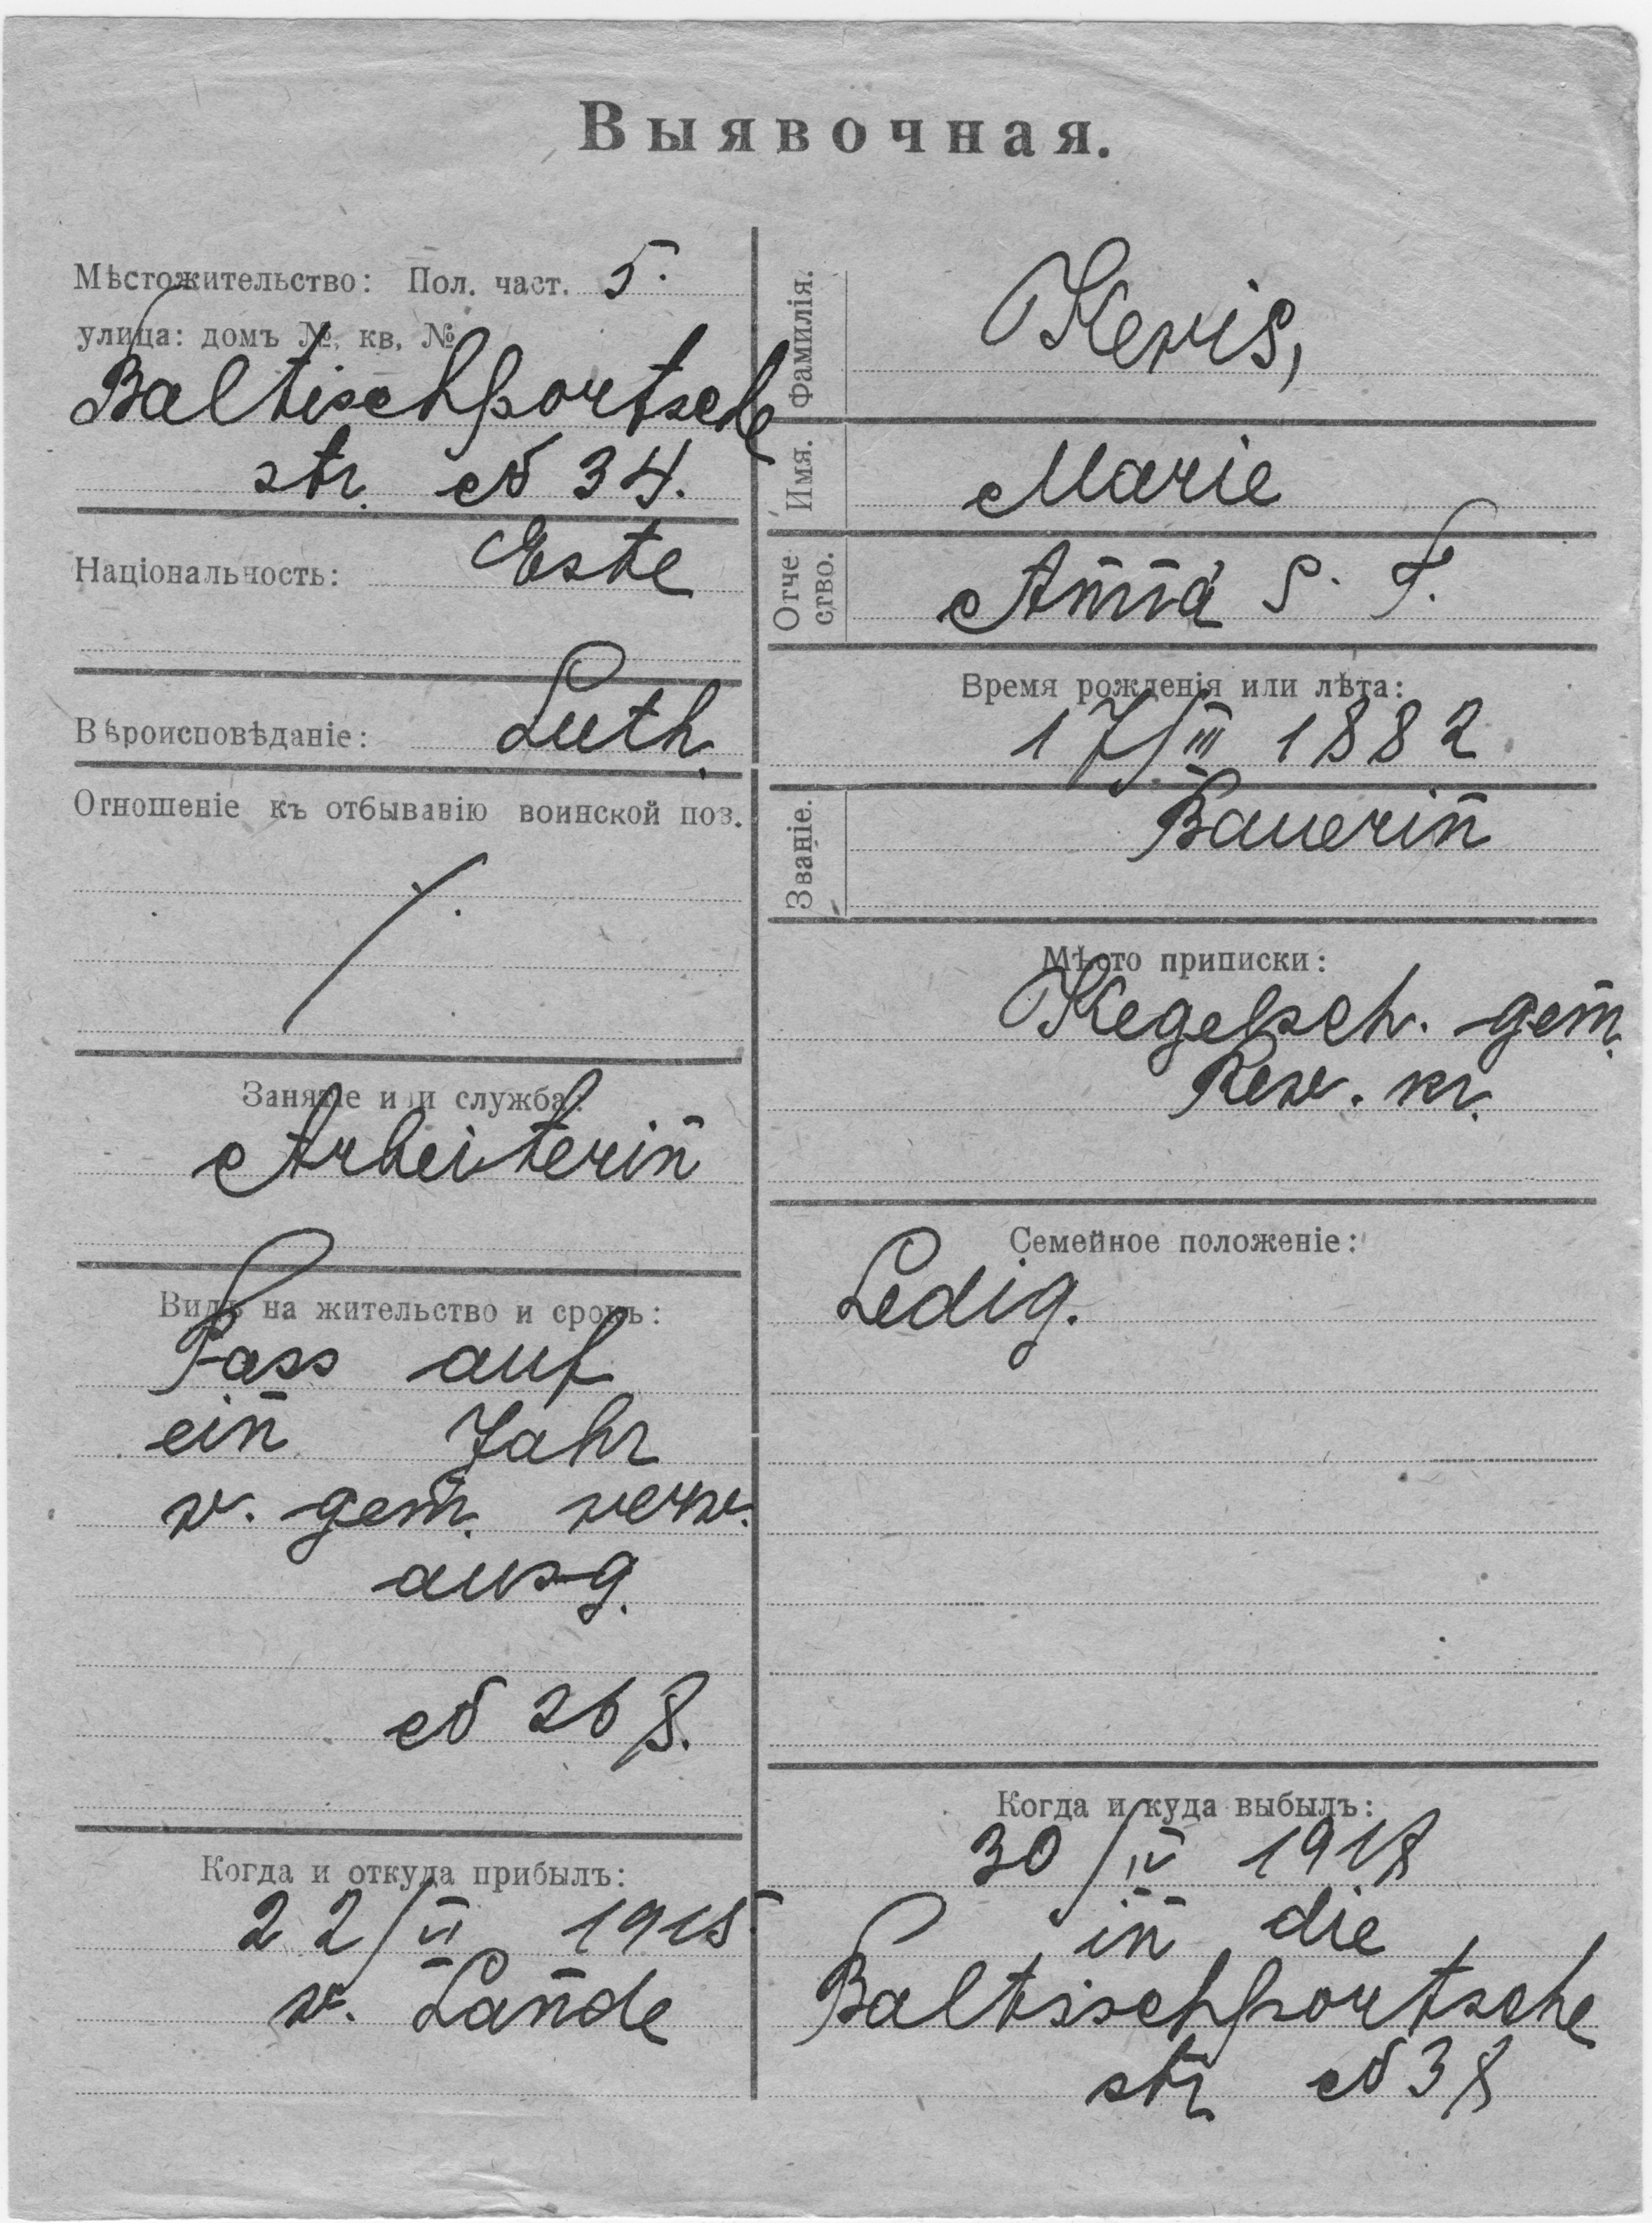 Выявочная.
Мѣстожительство: Пол. част. 5.
улица: домъ №. кв. №
Baltischportsche
str. № 34.
Національность: Este
Вѣроисповѣданіе: Luth.
Отношеніе къ отбыванію воинской пов.
/.
Занятіе или служба:
Arbeiterin̄
Видъ на жительство и срокъ:
Pass auf
ein̄ Jahr
v. gem̄. verw.
ausg.
№ 268.
Когда и откуда прибылъ:
22/VI 1915
v. Lan̄de
Фамилія. Kevis,
Имя. Marie
Отчество. An̄n̄a S. F.
Время рожденія или лѣта:
17/III 1882.
Званіе. Bauerin̄
Мѣсто приписки:
Kegelsch. gem̄.
Rev. kr.
Семейное положеніе:
Ledig.
Когда и куда выбылъ:
30/IV 1918
in̄ die
Baltischportsche
str № 38